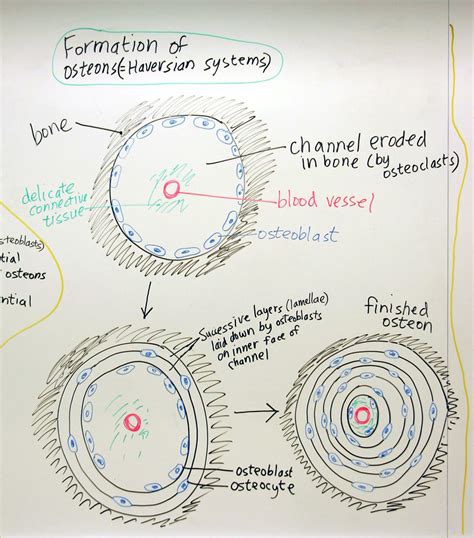 Formation of
osteons(=Haversian systems)
bone
channel eroded
in bone (by
osteoclasts)
delicate
connective
tissue
blood vessel
osteoblast
steoblasts)
tial
osteons
ntial
Sucessive layers (lamellae)
laid down by osteoblasts
on inner face of
channel
finished
osteon
osteoblast
osteocyte